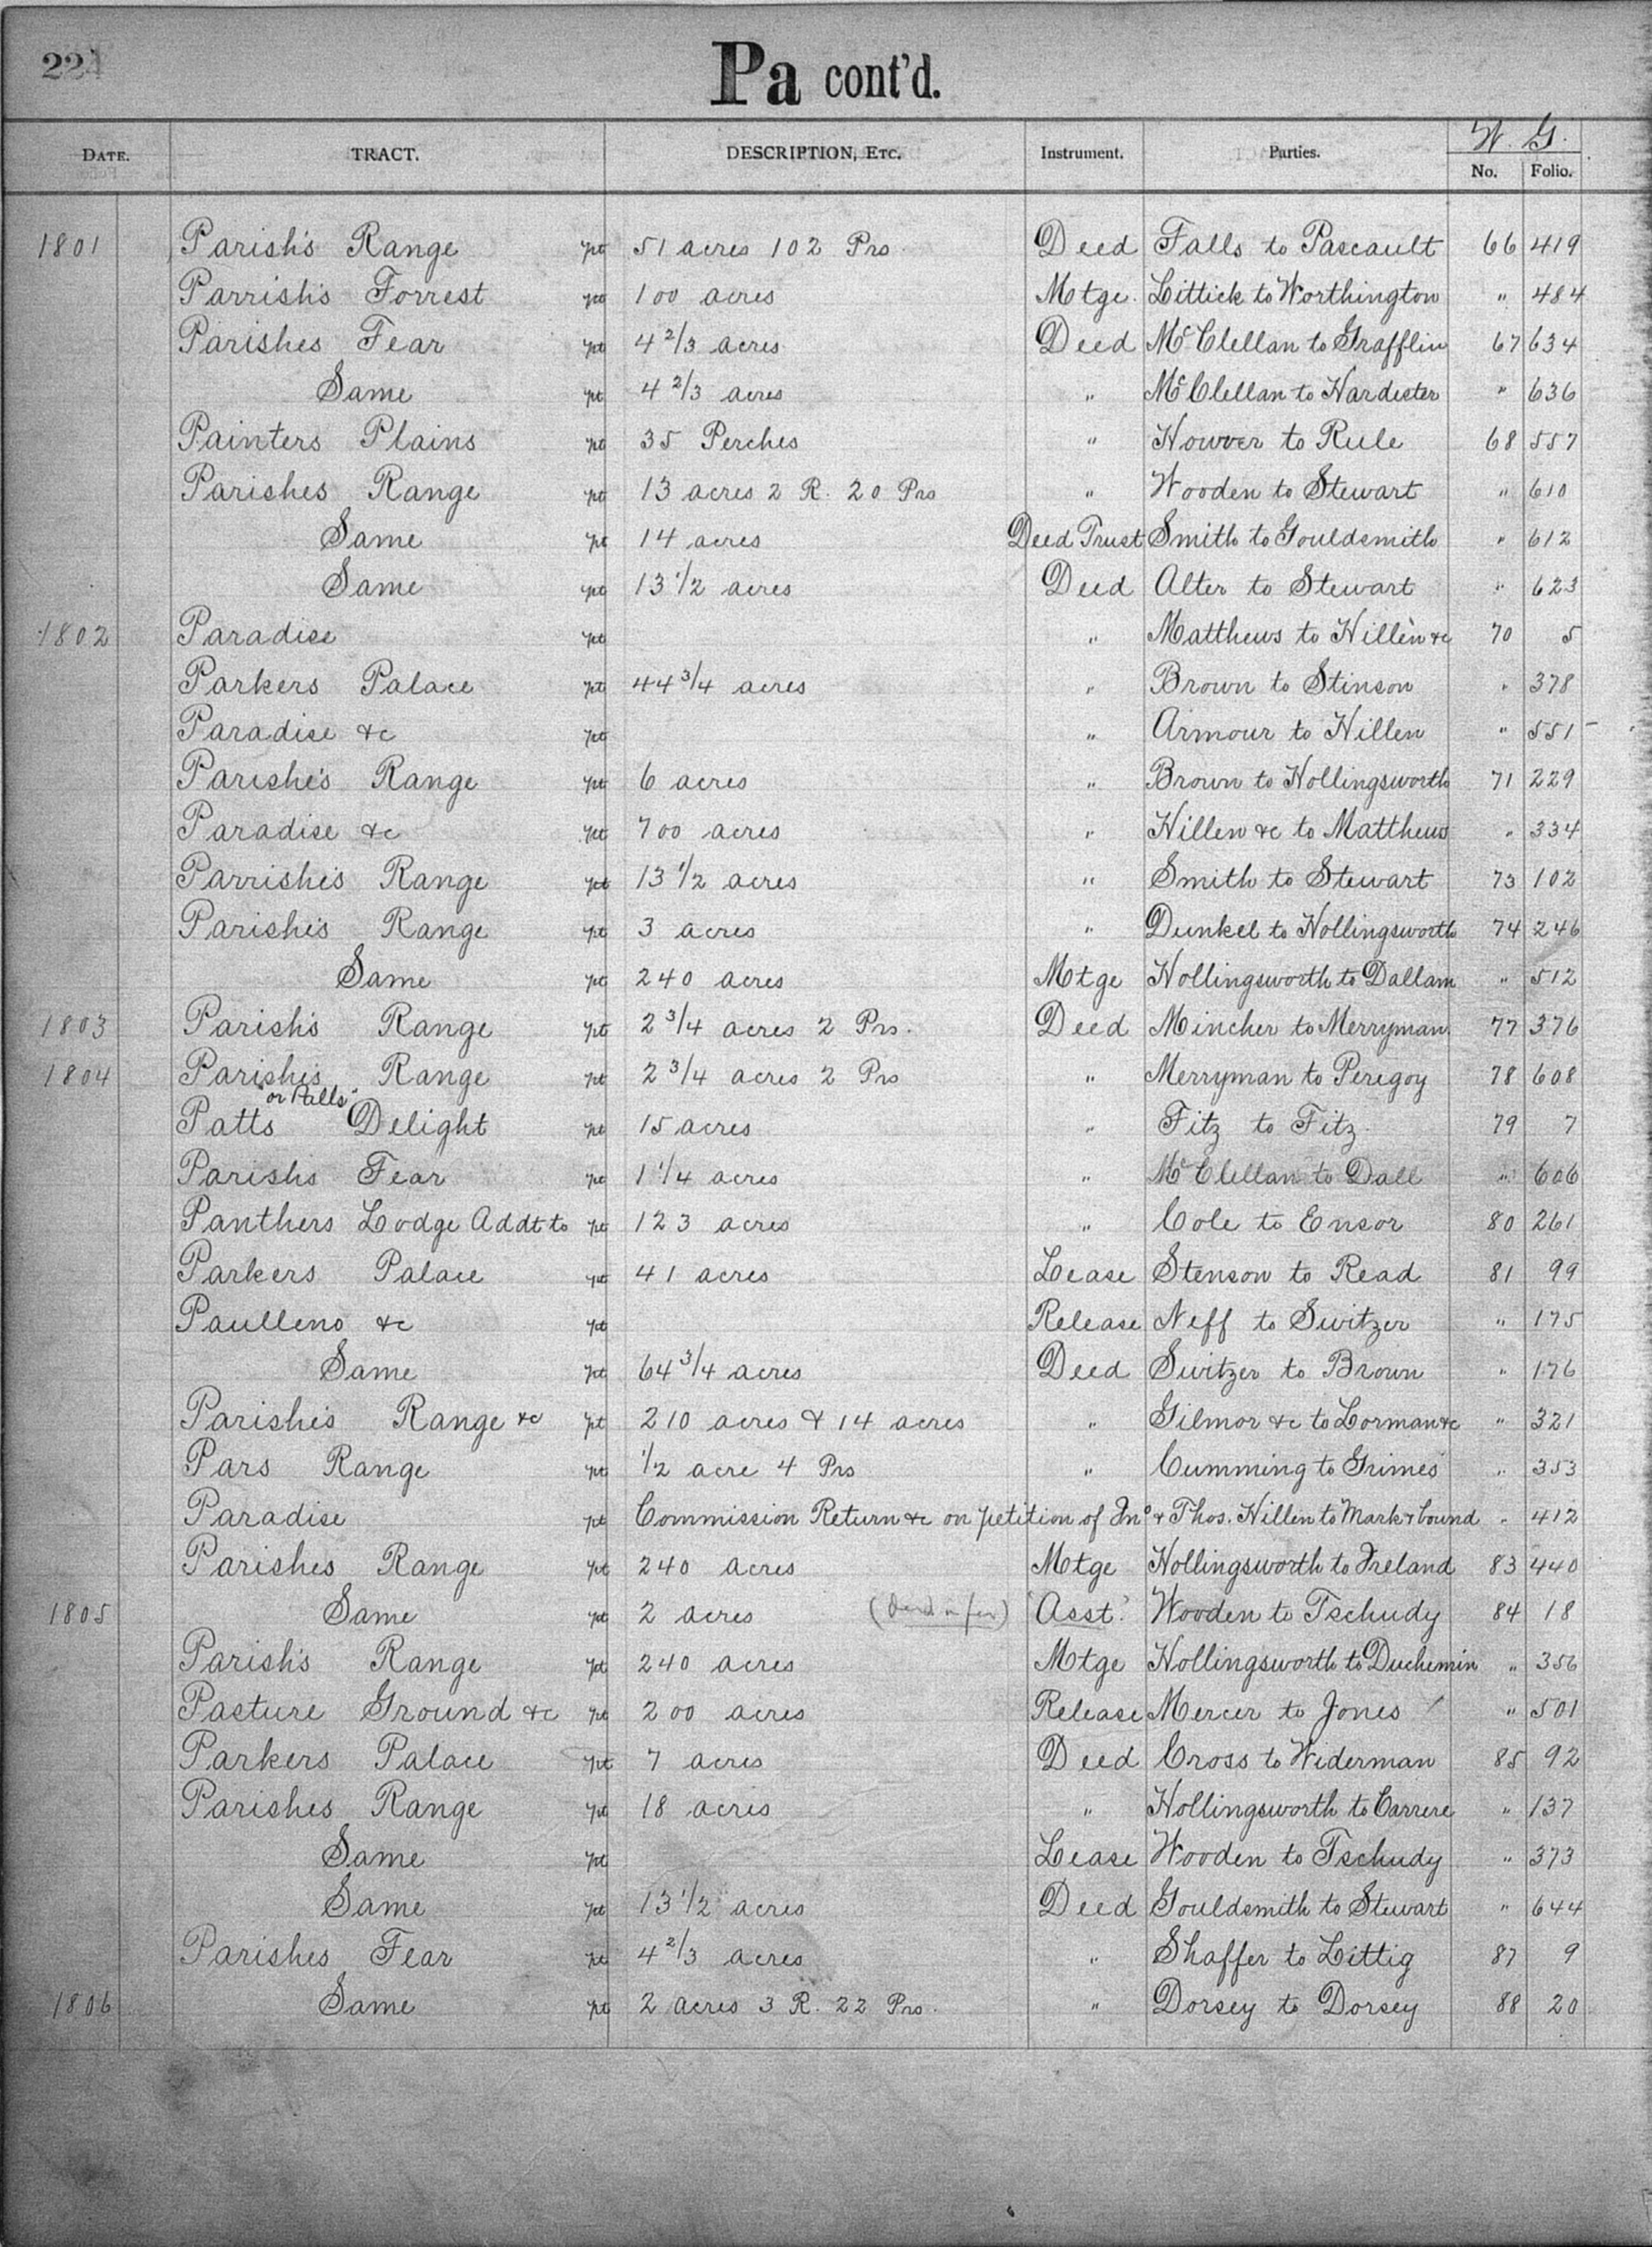 224
Pa cont'd.
W. G.
DATE. TRACT. DESCRIPTION, ETC. Instrument. Parties. No. Folio.
1801 Parish's Range pt 51 acres 102 Prs. Deed Falls to Pascault 66 419
Parrish's Forrest pt 100 acres Mtge. Littick to Worthington " 484
Parishes Fear pt 4 2/3 acres Deed McClellan to Grafflin 67 634
Same pt 4 2/3 acres " McClellan to Hardester " 636
Painters Plains pt 35 Perches " Howver to Rule 68 557
Parishes Range pt 13 acres 2 R. 20 Prs " Wooden to Stewart " 610
Same pt 14 acres Deed Trust Smith to Gouldsmith " 612
Same pt 13 1/2 acres Deed Alter to Stewart " 623
1802 Paradise pt " Matthews to Hillen &c 70 5
Parkers Palace pt 44 3/4 acres " Brown to Stinson " 378
Paradise &c pt " Armour to Hillen " 551
Parishe's Range pt 6 acres " Brown to Hollingsworth 71 229
Paradise &c pt 700 acres " Hillen &c to Matthews " 334
Parrishe's Range pt 13 1/2 acres " Smith to Stewart 73 102
Parishe's Range pt 3 acres " Dunkel to Hollingsworth 74 246
Same pt 240 acres Mtge Hollingsworth to Dallam " 512
1803 Parish's Range pt 2 3/4 acres 2 Prs. Deed Mincher to Merryman 77 376
1804 Parishe's Range pt 2 3/4 acres 2 Prs " Merryman to Perigoy 78 608
"or Palls"
Patts Delight pt 15 acres " Fitz to Fitz 79 7
Parishs Fear pt 1 1/4 acres " McClellan to Dall " 606
Panthers Lodge Addt to pt 123 acres " Cole to Ensor 80 261
Parkers Palace pt 41 acres Lease Stenson to Read 81 99
Paulleno &c pt Release Neff to Switzer " 175
Same pt 64 3/4 acres Deed Switzer to Brown " 176
Parishe's Range &c pt 210 acres & 14 acres " Gilmor &c to Lorman &c " 321
Pars Range pt 1/2 acre 4 Prs " Cumming to Grimes " 353
Paradise pt Commission Return &c on petition of Jno & Thos. Hillen to Mark & bound " 412
Parishes Range pt 240 acres Mtge Hollingsworth to Ireland 83 440
1805 Same pt 2 acres Asst. Wooden to Tschudy 84 18
Parish's Range pt 240 acres Mtge Hollingsworth to Duchemin " 356
Pasture Ground &c pt 200 acres Release Mercer to Jones " 501
Parkers Palace pt 7 acres Deed Cross to Widerman 85 92
Parishes Range pt 18 acres " Hollingsworth to Carrere " 137
Same pt Lease Wooden to Tschudy " 373
Same pt 13 1/2 acres Deed Gouldsmith to Stewart " 644
Parishes Fear pt 4 2/3 acres " Shaffer to Littig 87 9
1806 Same pt 2 acres 3 R. 22 Prs. " Dorsey to Dorsey 88 20